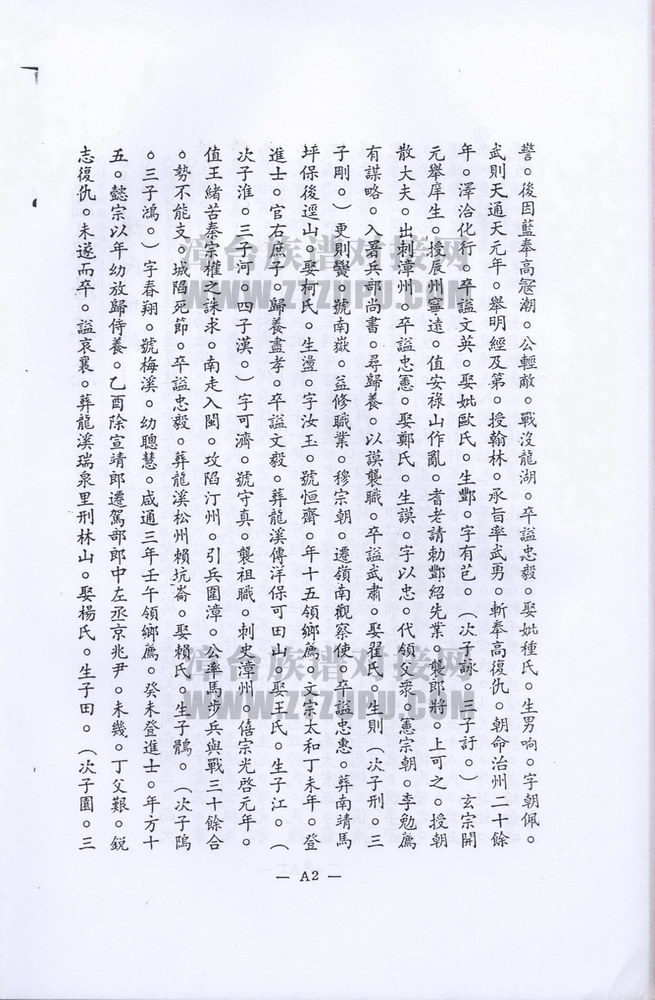 譽。後因藍奉高寇潮。公輕敵。戰沒龍湖。卒謚忠毅。娶妣種氏。生男珦。字朝佩。
武則天通天元年。舉明經及第。授翰林。承旨率武勇。斬奉高復仇。朝命治州二十餘
年。澤洽化行。卒謚文英。娶妣歐氏。生酆。字有芑。（次子詠。三子訏。）玄宗開
元舉庠生。授辰州寧遠。值安祿山作亂。耆老請勅酆紹先業。襲郎將。上可之。授朝
散大夫。出刺漳州。卒謚忠憲。娶鄭氏。生謨。字以忠。代領州衆。憲宗朝。李勉薦
有謀略。入署兵部尚書。尋歸養。以謨襲職。卒謚武肅。娶翟氏。生則（次子刑。三
子剛。）更則爕。號南嶽。益修職業。穆宗朝。遷嶺南觀察使。卒謚忠惠。葬南靖馬
坪保後逕山。娶柯氏。生盪。字汝玉。號恒齋。年十五領鄉薦。文宗太和丁未年。登
進士。官右庶子。歸養盡孝。卒謚文毅。葬龍溪傳洋保可田山。娶王氏。生子江。（
次子淮。三子河。四子漢。）字可濟。號守真。襲祖職。刺史漳州。僖宗光啓元年。
值王緒苦秦宗權之誅求。南走入閩。攻陷汀州。引兵圍漳。公率馬步兵與戰三十餘合
。勢不能支。城陷死節。卒謚忠毅。葬龍溪松州賴坑崙。娶賴氏。生子鶻。（次子鴅
。三子鴻。）字春翔。號梅溪。幼聰慧。咸通三年壬午領鄉薦。癸未登進士。年方十
五。懿宗以年幼放歸侍養。乙酉除宣靖郎遷駕部郎中左丞京兆尹。未幾。丁父艱。銳
志復仇。未遂而卒。謚哀襄。葬龍溪瑞泉里刑林山。娶楊氏。生子田。（次子園。三
— A2 —
漳台族谱对接网
WWW.ZTZUPU.COM
漳台族谱对接网
WWW.ZTZUPU.COM